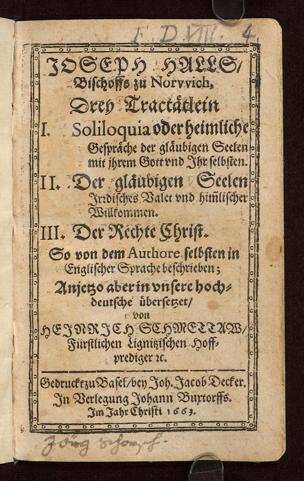 I. D. VIII. 4.
JOSEPH HALLS/
Bischoffs zu Norvvich,
Drey Tractätlein
I. Soliloquia oder heimliche
Gespräche der gläubigen Seelen
mit jhrem Gott vnd Jhr selbsten.
II. Der gläubigen Seelen
Irrdisches Valet vnd him̃lischer
Willkommen.
III. Der Rechte Christ.
So von dem Authore selbsten in
Englischer Sprache beschrieben;
Anjetzo aber in vnsere hoch-
deutsche übersetzet/
von
HEINRICH SCHMETTAW/
Fürstlichen Lignitzischen Hoff-
prediger ꝛc.
Gedruckt zu Basel/ bey Joh. Jacob Decker.
In Verlegung Johann Buxtorffs.
Im Jahr Christi 1663.